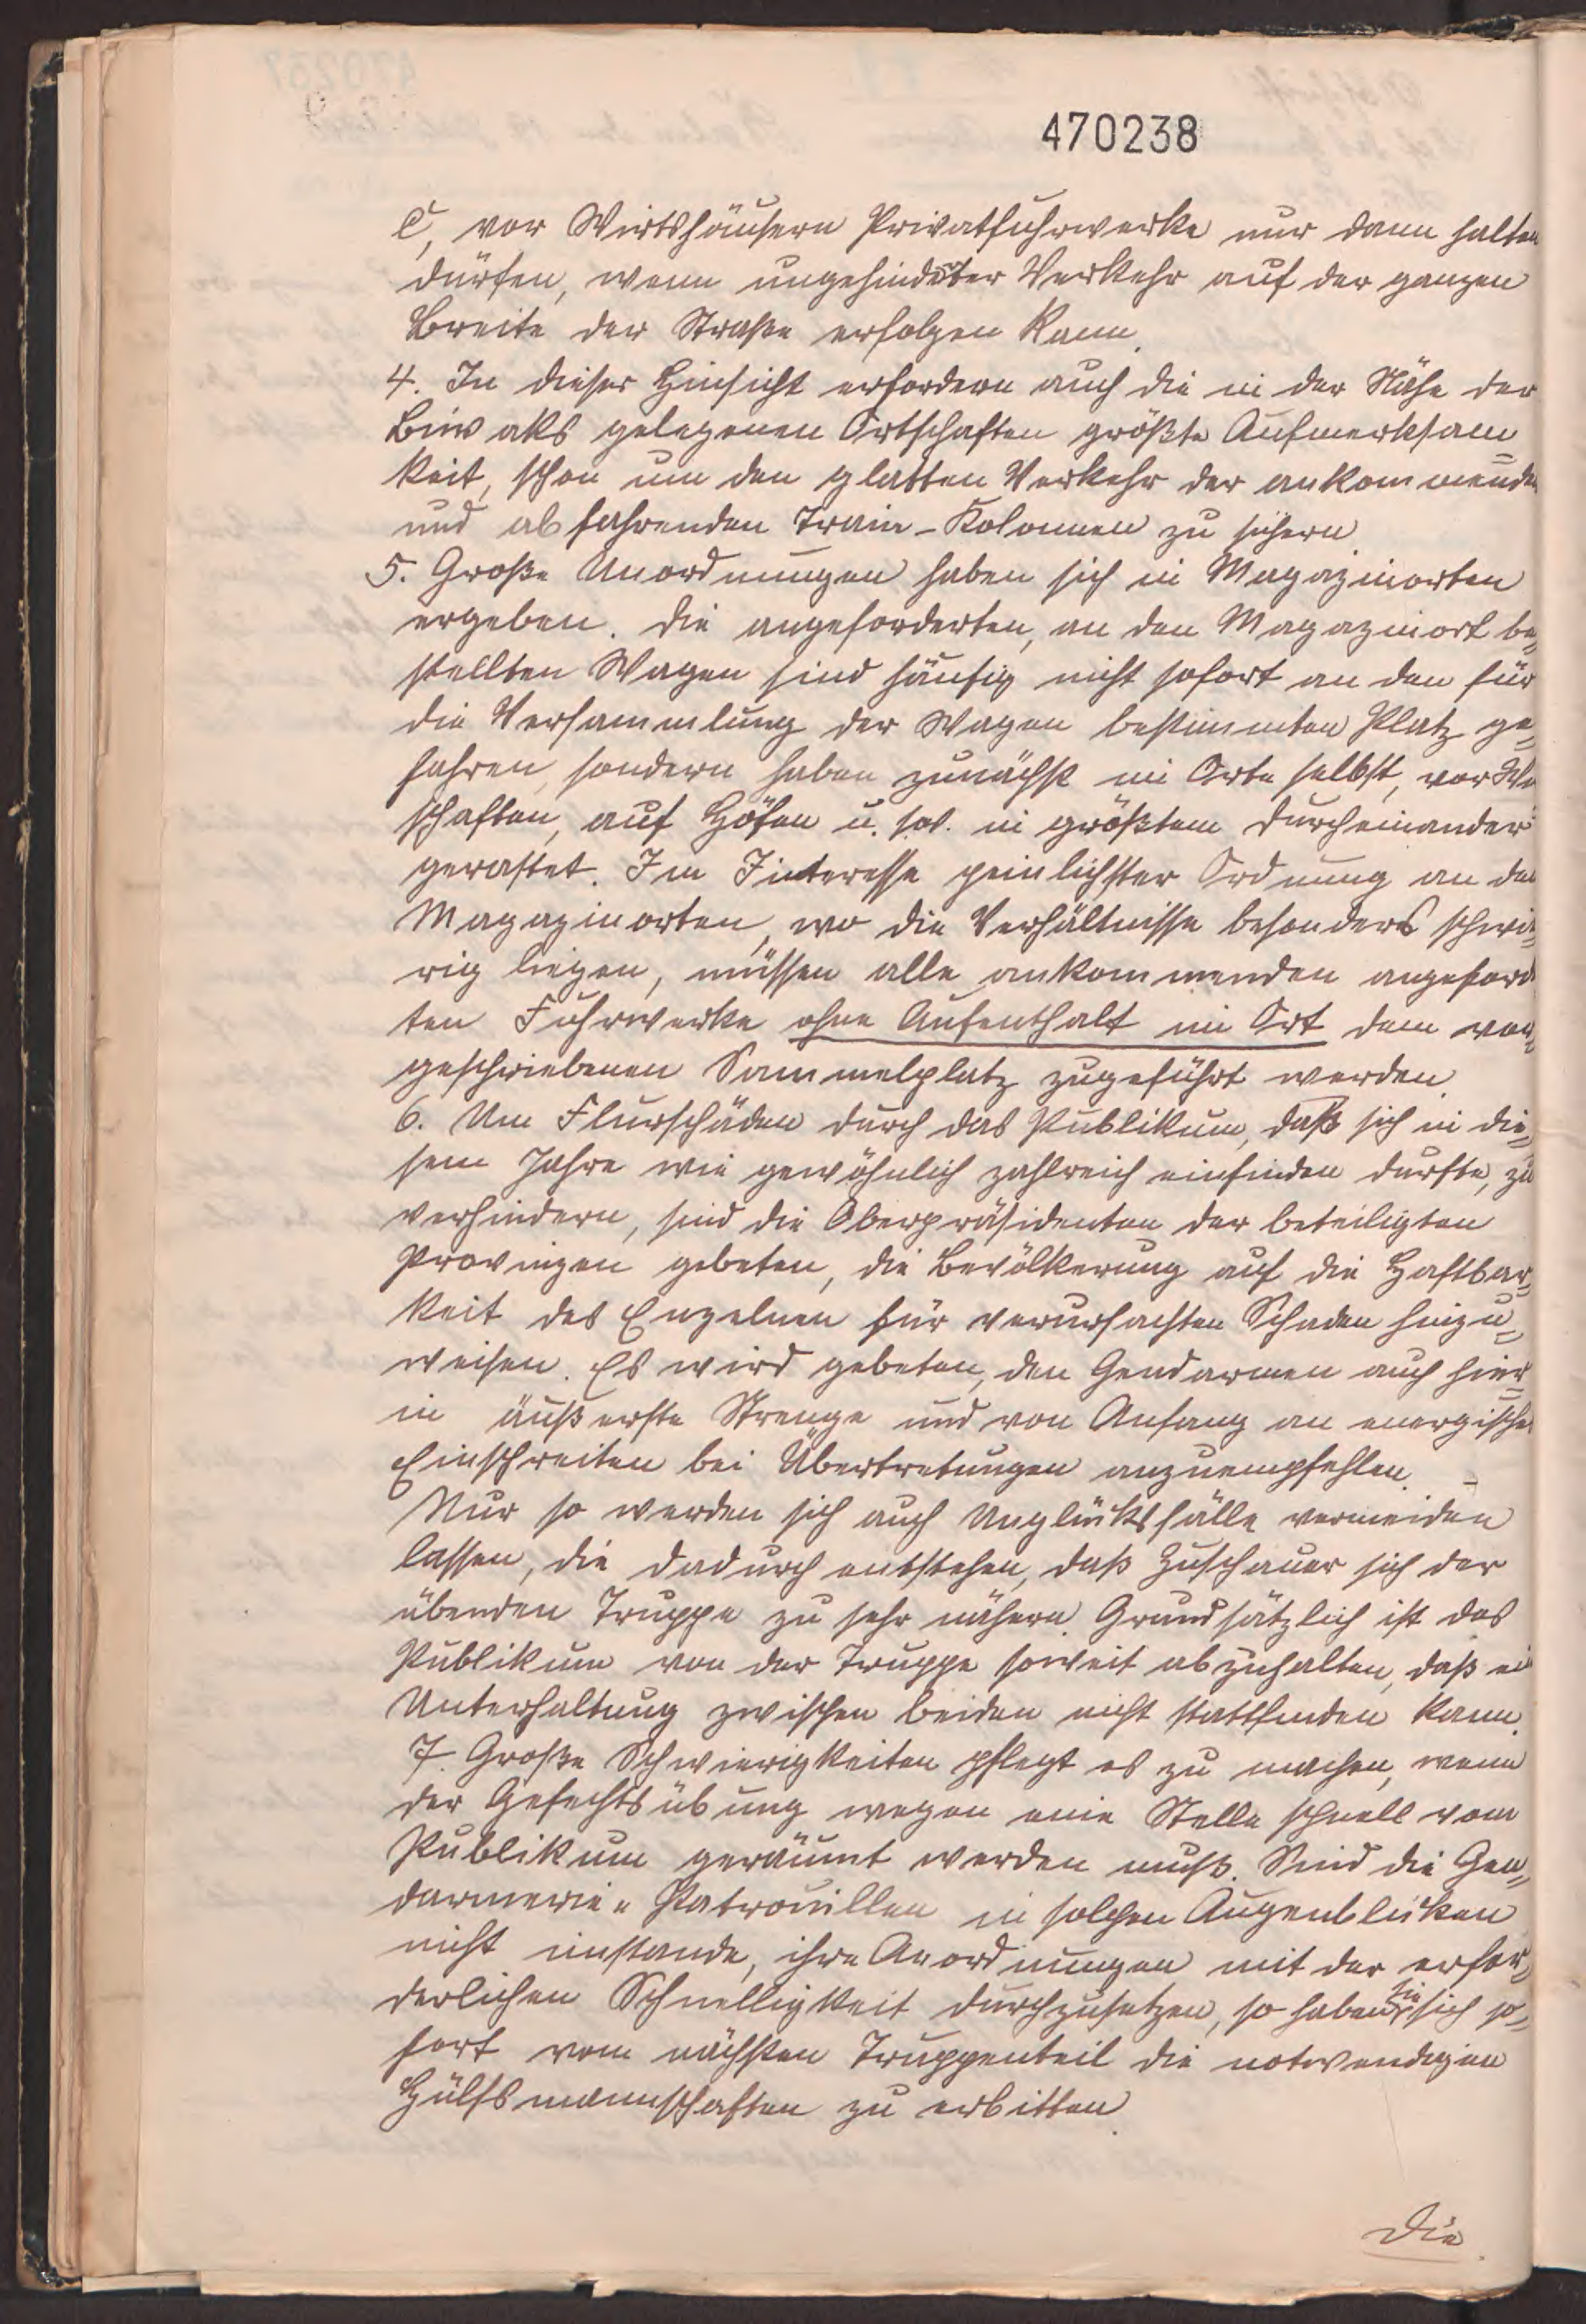 470238
c, vor Wirtshäusern Privatfuhrwerke nur dann halten
dürfen, wenn ungehinderter Verkehr auf der ganzen
Breite der Straße erfolgen kann.
4. In dieser Hinsicht erfordern auch die in der Nähe der
Biwaks gelegenen Ortschaften größte Aufmerksam=
keit, schon um den glatten Verkehr der ankommenden
und abfahrenden Train-Kolonnen zu sichern.
5. Große Unordnungen haben sich in Magazinorten
ergeben. Die angeforderten, an den Magazinort be=
stellten Wagen sind häufig nicht sofort an den für
die Versammlung der Wagen bestimmten Platz ge=
fahren, sondern haben zunächst im Orte selbst, vor
schaften, auf Höfen u. s. w. in größtem Durcheinander
gerastet. Im Interesse peinlichster Ordnung an den
Magazinorten, wo die Verhältnisse besonders schwie=
rig liegen, müssen alle ankommenden angeforder
ten Fuhrwerke ohne Aufenthalt im Ort dem vor=
geschriebenen Sammelplatz zugeführt werden.
6. Um Flurschäden durch das Publikum, daß sich in die=
sem Jahre wie gewöhnlich zahlreich einfinden dürfte, zu
verhindern, sind die Oberpräsidenten der beteiligten
Provinzen gebeten, die Bevölkerung auf die Haftbar=
keit des Einzelnen für verursachten Schaden hinzu=
weisen. Es wird gebeten, den Gendarmen auch hier=
in äußerste Strenge und von Anfang an energisches
Einschreiten bei Übertretungen anzuempfehlen. -
Nur so werden sich auch Unglücksfälle vermeiden
lassen, die dadurch entstehen, daß Zuschauer sich der
übenden Truppe zu sehr nähern. Grundsätzlich ist das
Publikum von der Truppe soweit abzuhalten, daß ei
Unterhaltung zwischen beiden nicht stattfinden kann.
7. Große Schwierigkeiten pflegt es zu machen, wenn
der Gefechtsübung wegen eine Stelle schnell vom
Publikum geräumt werden muß. Sind die Gen=
darmerie= Patrouillen in solchen Augenblicken
nicht imstande, ihre Anordnungen mit der erfor=
derlichen Schnelligkeit durchzusetzen, so haben sie sich so=
fort vom nächsten Truppenteil die notwendigen
Hülfsmannschaften zu erbitten.
Die